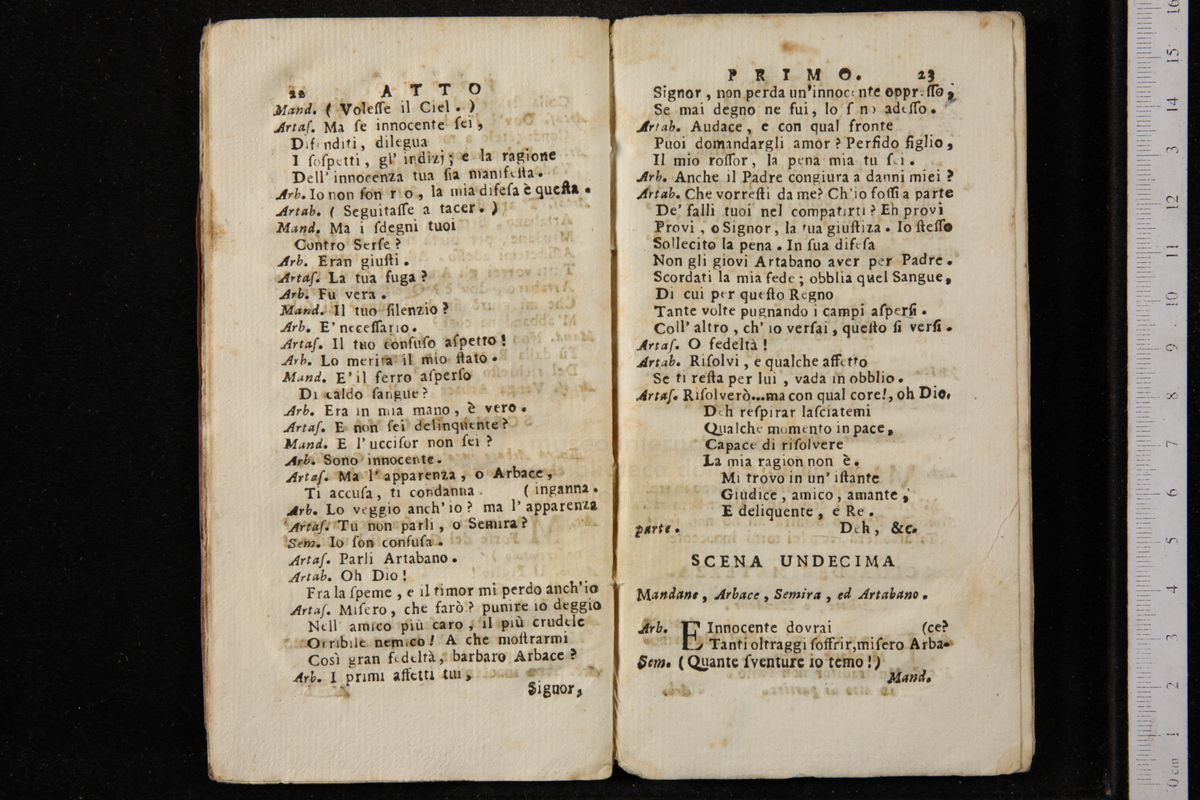 22 ATTO
Mand. ( Voleſſe il Ciel. )
Artaſ. Ma ſe innocente ſei,
Difenditi, dilegua
I ſoſpetti, gl' indizj; e la ragione
Dell' innocenza tua ſia manifeſta.
Arb. Io non ſon reo, la mia difeſa è queſta.
Artab. ( Seguitaſſe a tacer. )
Mand. Ma i ſdegni tuoi
Contro Serſe?
Arb. Eran giuſti.
Artaſ. La tua fuga?
Arb. Fu vera.
Mand. Il tuo ſilenzio?
Arb. E' neceſſario.
Artaſ. Il tuo confuſo aſpetto!
Arb. Lo merita il mio ſtato.
Mand. E' il ferro aſperſo
Di caldo ſangue?
Arb. Era in mia mano, è vero.
Artaſ. E non ſei delinquente?
Mand. E l' uccifor non ſei?
Arb. Sono innocente.
Artaſ. Ma l' apparenza, o Arbace,
Ti accuſa, ti condanna. ( inganna.
Arb. Lo veggio anch' io? ma l' apparenza
Artaſ. Tu non parli, o Semira?
Sem. Io ſon confuſa.
Artaſ. Parli Artabano.
Artab. Oh Dio!
Fra la ſpeme, e il timor mi perdo anch'io
Artaſ. Miſero, che farò? punire io deggio
Nell' amico più caro, il più crudele
Orribile nemico! A che moſtrarmi
Così gran fedeltà, barbaro Arbace?
Arb. I primi affetti tui,
Signor,
PRIMO. 23
Signor, non perda un'innocente oppreſſo;
Se mai degno ne fui, lo ſono adeſſo.
Artab. Audace, e con qual fronte
Puoi domandargli amor? Perfido figlio,
Il mio roſſor, la pena mia tu ſei.
Arb. Anche il Padre congiura a danni miei?
Artab. Che vorreſti da me? Ch'io foſſi a parte
De' falli tuoi nel compatirti? Eh provi
Provi, o Signor, la tua giuſtiza. Io ſteſſo
Sollecito la pena. In ſua difeſa
Non gli giovi Artabano aver per Padre.
Scordati la mia fede; obblia quel Sangue,
Di cui per queſto Regno
Tante volte pugnando i campi aſperſi.
Coll' altro, ch' io verſai, queſto ſi verſi.
Artaſ. O fedeltà!
Artab. Riſolvi, e qualche affetto
Se ti reſta per lui, vada in obblio.
Artaſ. Riſolverò...ma con qual core!, oh Dio,
Deh reſpirar laſciatemi
Qualche momento in pace,
Capace di riſolvere
La mia ragion non è.
Mi trovo in un' iſtante
Giudice, amico, amante,
E deliquente, e Re.
parte. Deh, &c.
SCENA UNDECIMA
Mandane, Arbace, Semira, ed Artabano.
Arb. E Innocente dovrai (ce?
Tanti oltraggi ſoffrir, miſero Arba-
Sem. (Quante ſventure io temo!)
Mand.